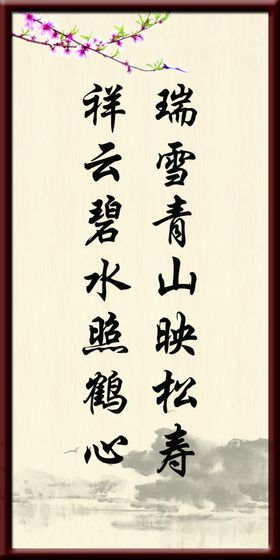 瑞雪青山映松寿
祥云碧水照鹤心